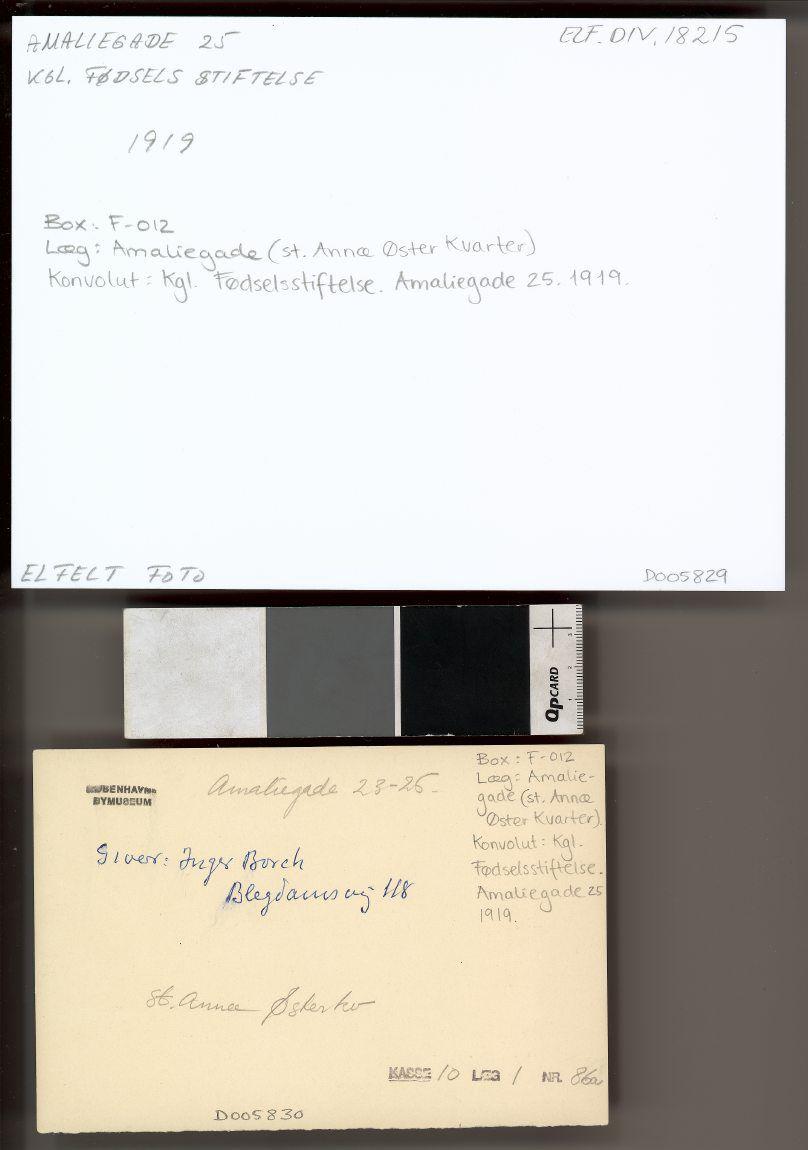 AMALIEGADE 25
ELF. DIV. 18215
KGL. FØDSELS STIFTELSE
1919
Box: F-012
Læg: Amaliegade (st. Annæ Øster Kvarter)
Konvolut: Kgl. Fødselsstiftelse. Amaliegade 25. 1919.
ELFELT FOTO
D005829
QPCARD
KØBENHAVNS
BYMUSEUM
Amaliegade 23-25.
Box: F-012
Læg: Amalie-
gade (st. Annæ
Øster Kvarter).
Konvolut: Kgl.
Fødselsstiftelse.
Amaliegade 25
1919.
Giver: Inger Borch
Blegdamsvej 118
St. Annæ Østerkv
KASSE 10 LÆG 1 NR. 86a
D005830